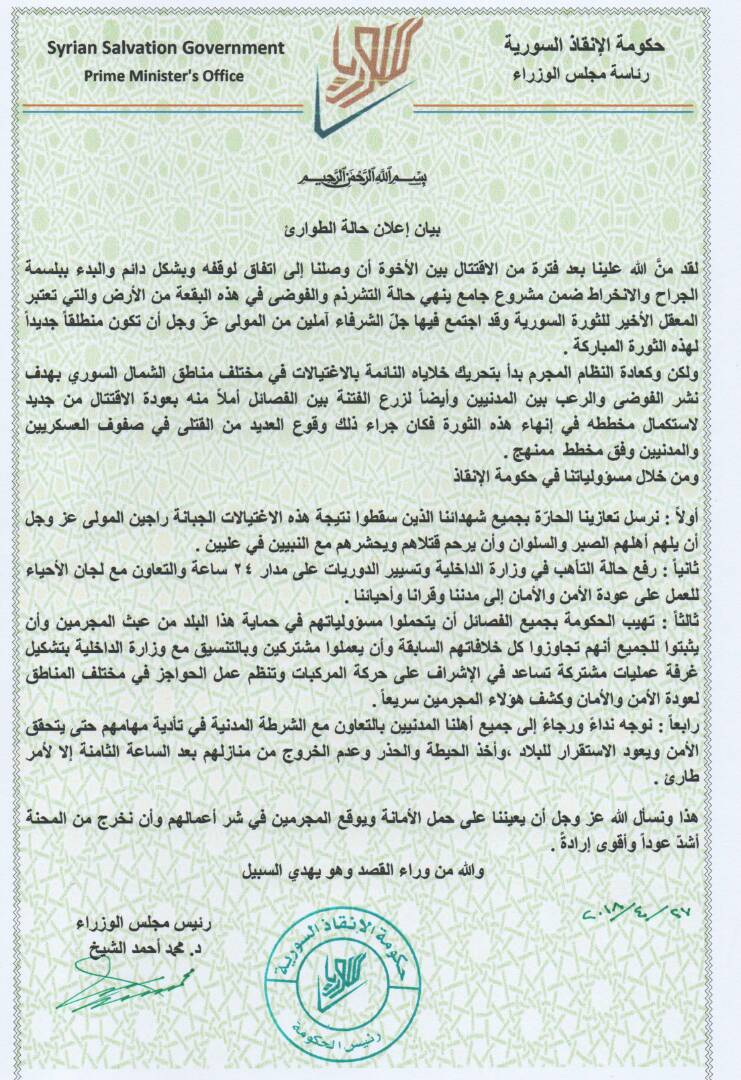 Syrian Salvation Government
Prime Minister's Office
حكومة الإنقاذ السورية
رئاسة مجلس الوزراء
سوريا
بسم الله الرحمن الرحيم
بيان إعلان حالة الطوارئ
لقد منَّ الله علينا بعد فترة من الاقتتال بين الأخوة أن وصلنا إلى اتفاق لوقفه وبشكل دائم والبدء ببلسمة
الجراح والانخراط ضمن مشروع جامع ينهي حالة التشرذم والفوضى في هذه البقعة من الأرض والتي تعتبر
المعقل الأخير للثورة السورية وقد اجتمع فيها جلّ الشرفاء آملين من المولى عزّ وجل أن تكون منطلقاً جديداً
لهذه الثورة المباركة .
ولكن وكعادة النظام المجرم بدأ بتحريك خلاياه النائمة بالاغتيالات في مختلف مناطق الشمال السوري بهدف
نشر الفوضى والرعب بين المدنيين وأيضاً لزرع الفتنة بين الفصائل أملاً منه بعودة الاقتتال من جديد
لاستكمال مخططه في إنهاء هذه الثورة فكان جراء ذلك وقوع العديد من القتلى في صفوف العسكريين
والمدنيين وفق مخطط ممنهج .
ومن خلال مسؤولياتنا في حكومة الإنقاذ
أولاً : نرسل تعازينا الحارّة بجميع شهدائنا الذين سقطوا نتيجة هذه الاغتيالات الجبانة راجين المولى عز وجل
أن يلهم أهلهم الصبر والسلوان وأن يرحم قتلاهم ويحشرهم مع النبيين في عليين .
ثانياً : رفع حالة التأهب في وزارة الداخلية وتسيير الدوريات على مدار ٢٤ ساعة والتعاون مع لجان الأحياء
للعمل على عودة الأمن والأمان إلى مدننا وقرانا وأحيائنا .
ثالثاً : تهيب الحكومة بجميع الفصائل أن يتحملوا مسؤولياتهم في حماية هذا البلد من عبث المجرمين وأن
يثبتوا للجميع أنهم تجاوزوا كل خلافاتهم السابقة وأن يعملوا مشتركين وبالتنسيق مع وزارة الداخلية بتشكيل
غرفة عمليات مشتركة تساعد في الإشراف على حركة المركبات وتنظم عمل الحواجز في مختلف المناطق
لعودة الأمن والأمان وكشف هؤلاء المجرمين سريعاً .
رابعاً : نوجه نداءً ورجاءً إلى جميع أهلنا المدنيين بالتعاون مع الشرطة المدنية في تأدية مهامهم حتى يتحقق
الأمن ويعود الاستقرار للبلاد ،وأخذ الحيطة والحذر وعدم الخروج من منازلهم بعد الساعة الثامنة إلا لأمر
طارئ .
هذا ونسأل الله عز وجل أن يعيننا على حمل الأمانة ويوقع المجرمين في شر أعمالهم وأن نخرج من المحنة
أشدّ عوداً وأقوى إرادةً .
والله من وراء القصد وهو يهدي السبيل
رئيس مجلس الوزراء
د. محمد أحمد الشيخ
حكومة الانقاذ السورية
سوريا
رئيس الحكومة